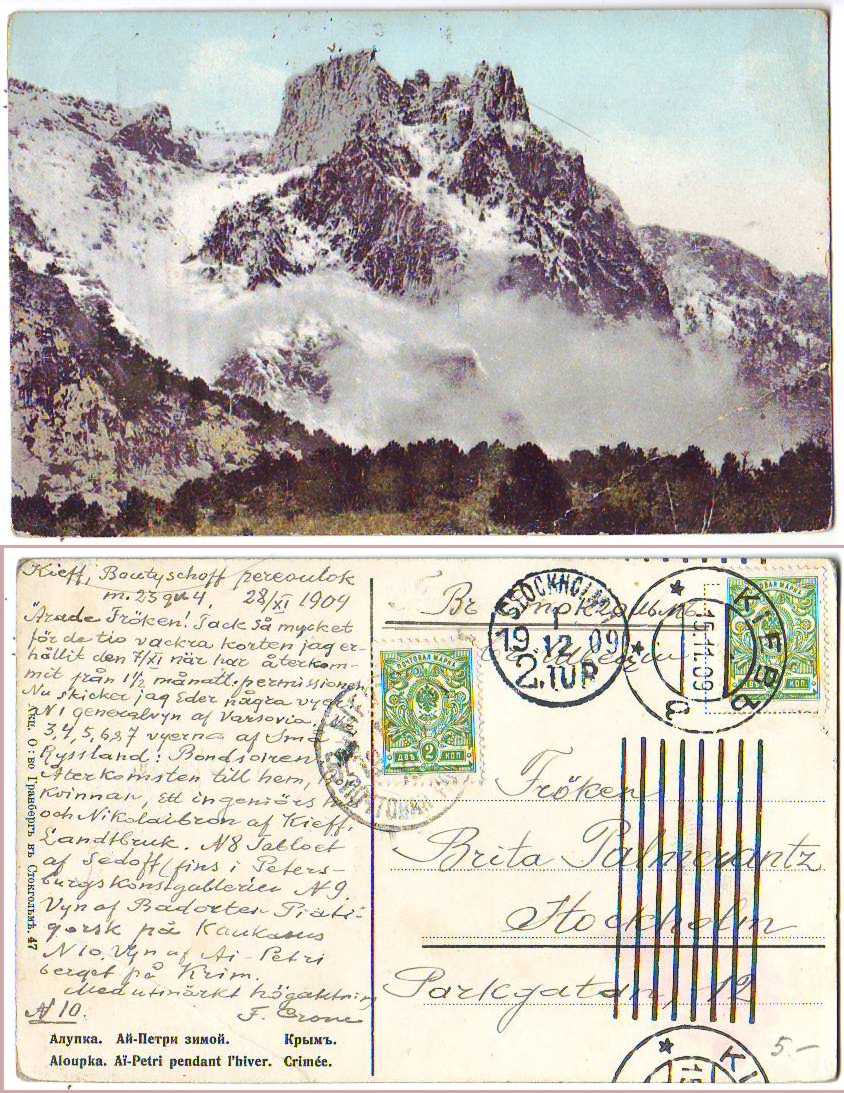 Kieff, Boutyschoff pereoulok
m. 23 qu 4, 28/XI 1909
Ärade Fröken! Tack så mycket
för de tio vackra korten jag er-
hållit den 7/XI när har återkom-
mit från 1½ månatl. permissionen
Nu skicker jag Eder några vyer
N 1 generalvyn af Varsovia.
3, 4, 5, 6 & 7 vyerna af Små
Ryssland: Bondsoiren
Återkomsten till hem,
Kvinnan, Ett ingeniörs
och Nikolaibron af Kieff,
Landtbruk. N 8 Tabloet
af Sedoff/fins i Peters-
burgs konstgallerier N 9.
Vyn af Badorten Piati-
gorsk på Kaukasus
N 10. Vyn af Ai-Petri
berget på Krim.
Med utmärkt högaktning
N 10. F. Crone
Алупка. Ай-Петри зимой. Крымъ.
Aloupka. Aï-Petri pendant l'hiver. Crimée.
Акц. О-во Гранбергъ въ Стокгольмѣ. 47
Въ Стокгольмъ
STOCKHOLM
1
19 12 09
2.TUR
КІЕВЪ
15.11.09
ПОЧТОВАЯ МАРКА
2
ДВѢ КОП.
ПОЧТОВАЯ МАРКА
КОП.
Fröken
Brita Palmcrantz
Stockholm
Parkgatan, 12
5-